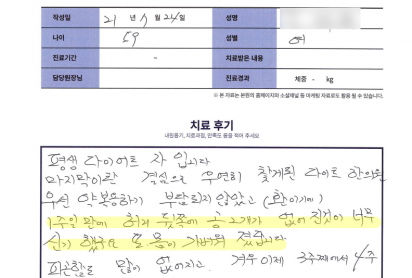 작성일 21 년 1 월 24 일 성명
나이 59 성별 여
진료기간 - 치료받은 내용
담당원장님 진료경과 체중 - kg
※ 본 자료는 본원의 홈페이지와 소셜채널 등 마케팅 자료로도 활용 될 수 있습니다
치료 후기
내원동기, 치료과정, 만족도 등을 적어 주세요
평생 다이어트 자 입니다
마지막이란 결심으로 우연히 찾게된 다이트 한의원
우선 약복용하기 부담되지 않았고 (환이기에)
1주일만에 허리 뒤쪽에 공2개가 없어진것이 너무
신기했구요 몸이 가벼워 졌답니다
피곤함도 많이 없어지고 겨우 이제 3주째에서 4주